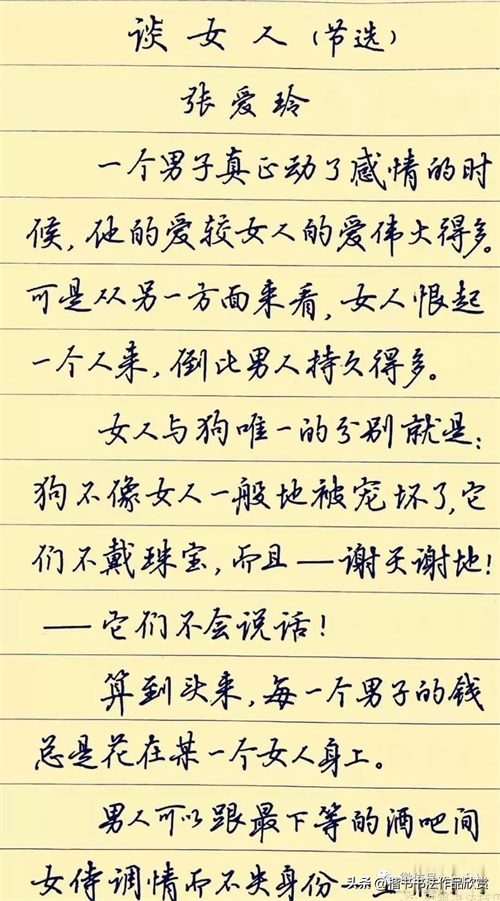 谈女人(节选)
张爱玲
一个男子真正动了感情的时
候,他的爱较女人的爱伟大得多。
可是从另一方面来看,女人恨起
一个人来,倒比男人持久得多。
女人与狗唯一的分别就是:
狗不像女人一般地被宠坏了,它
们不戴珠宝,而且——谢天谢地!
——它们不会说话!
算到头来,每一个男子的钱
总是花在某一个女人身上。
男人可以跟最下等的酒吧间
女侍调情而不失身份
头条@楷书书法作品欣赏